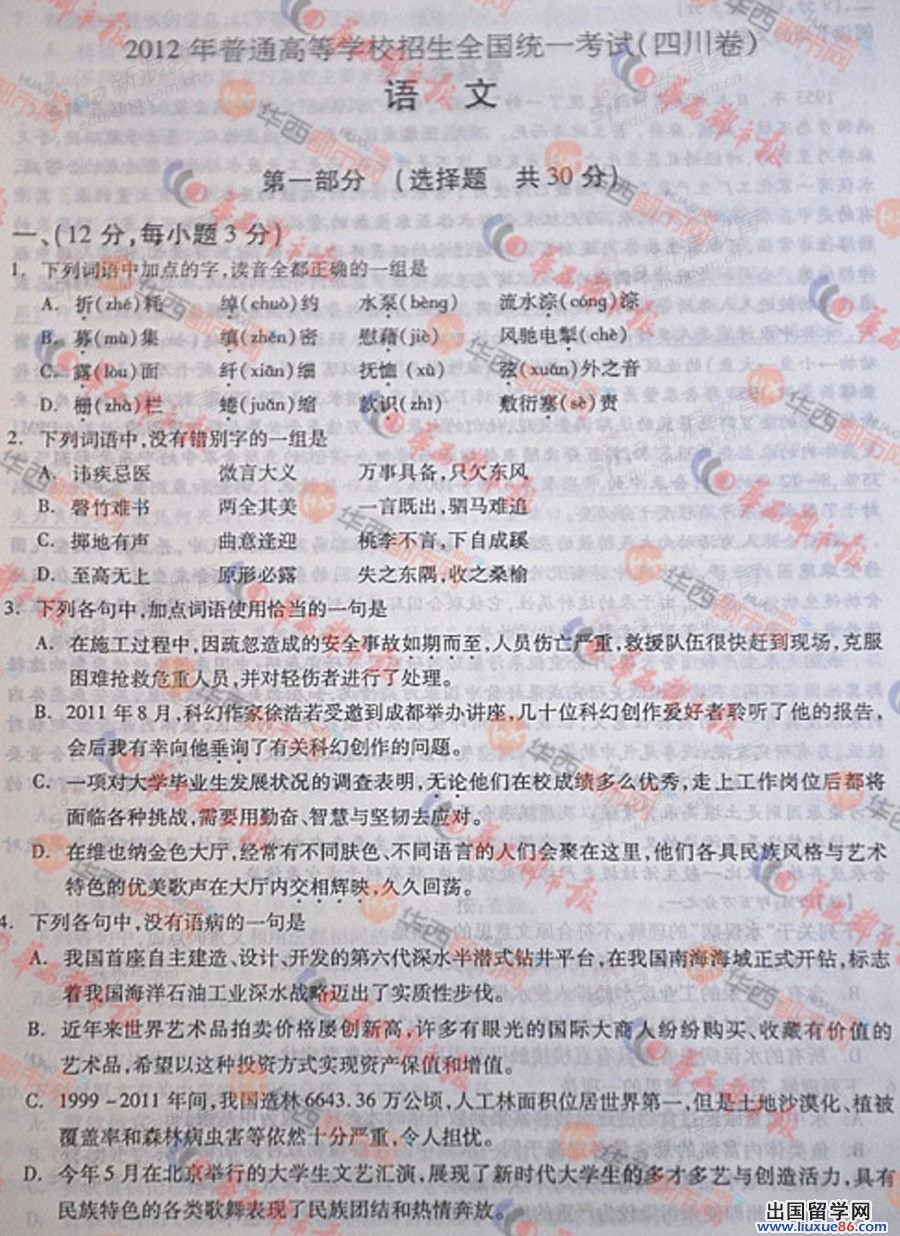 2012年普通高等学校招生全国统一考试(四川卷)
语 文
第一部分 (选择题 共30分)
一、(12分,每小题3分)
1. 下列词语中加点的字,读音全都正确的一组是
A. 折(zhé)耗 绰(chuò)约 水泵(bèng) 流水淙(cóng)淙
B. 募(mù)集 缜(zhěn)密 慰藉(jiè) 风驰电掣(chè)
C. 露(lòu)面 纤(xiān)细 抚恤(xù) 弦(xuán)外之音
D. 栅(zhà)栏 蜷(juǎn)缩 款识(zhì) 敷衍塞(sè)责
2. 下列词语中,没有错别字的一组是
A. 讳疾忌医 微言大义 万事具备,只欠东风
B. 磬竹难书 两全其美 一言既出,驷马难追
C. 掷地有声 曲意逢迎 桃李不言,下自成蹊
D. 至高无上 原形必露 失之东隅,收之桑榆
3. 下列各句中,加点词语使用恰当的一句是
A. 在施工过程中,因疏忽造成的安全事故如期而至,人员伤亡严重,救援队伍很快赶到现场,克服
困难抢救危重人员,并对轻伤者进行了处理。
B. 2011年8月,科幻作家徐浩若受邀到成都举办讲座,几十位科幻创作爱好者聆听了他的报告,
会后我有幸向他垂询了有关科幻创作的问题。
C. 一项对大学毕业生发展状况的调查表明,无论他们在校成绩多么优秀,走上工作岗位后都将
面临各种挑战,需要用勤奋、智慧与坚韧去应对。
D. 在维也纳金色大厅,经常有不同肤色、不同语言的人们会聚在这里,他们各具民族风格与艺术
特色的优美歌声在大厅内交相辉映,久久回荡。
4. 下列各句中,没有语病的一句是
A. 我国首座自主建造、设计、开发的第六代深水半潜式钻井平台,在我国南海海域正式开钻,标志
着我国海洋石油工业深水战略迈出了实质性步伐。
B. 近年来世界艺术品拍卖价格屡创新高,许多有眼光的国际大商人纷纷购买、收藏有价值的
艺术品,希望以这种投资方式实现资产保值和增值。
C. 1999-2011年间,我国造林6643.36万公顷,人工林面积位居世界第一,但是土地沙漠化、植被
覆盖率和森林病虫害等依然十分严重,令人担忧。
D. 今年5月在北京举行的大学生文艺汇演,展现了新时代大学生的多才多艺与创造活力,具有
民族特色的各类歌舞表现了民族团结和热情奔放。
出国留学网
www.liuxue86.com